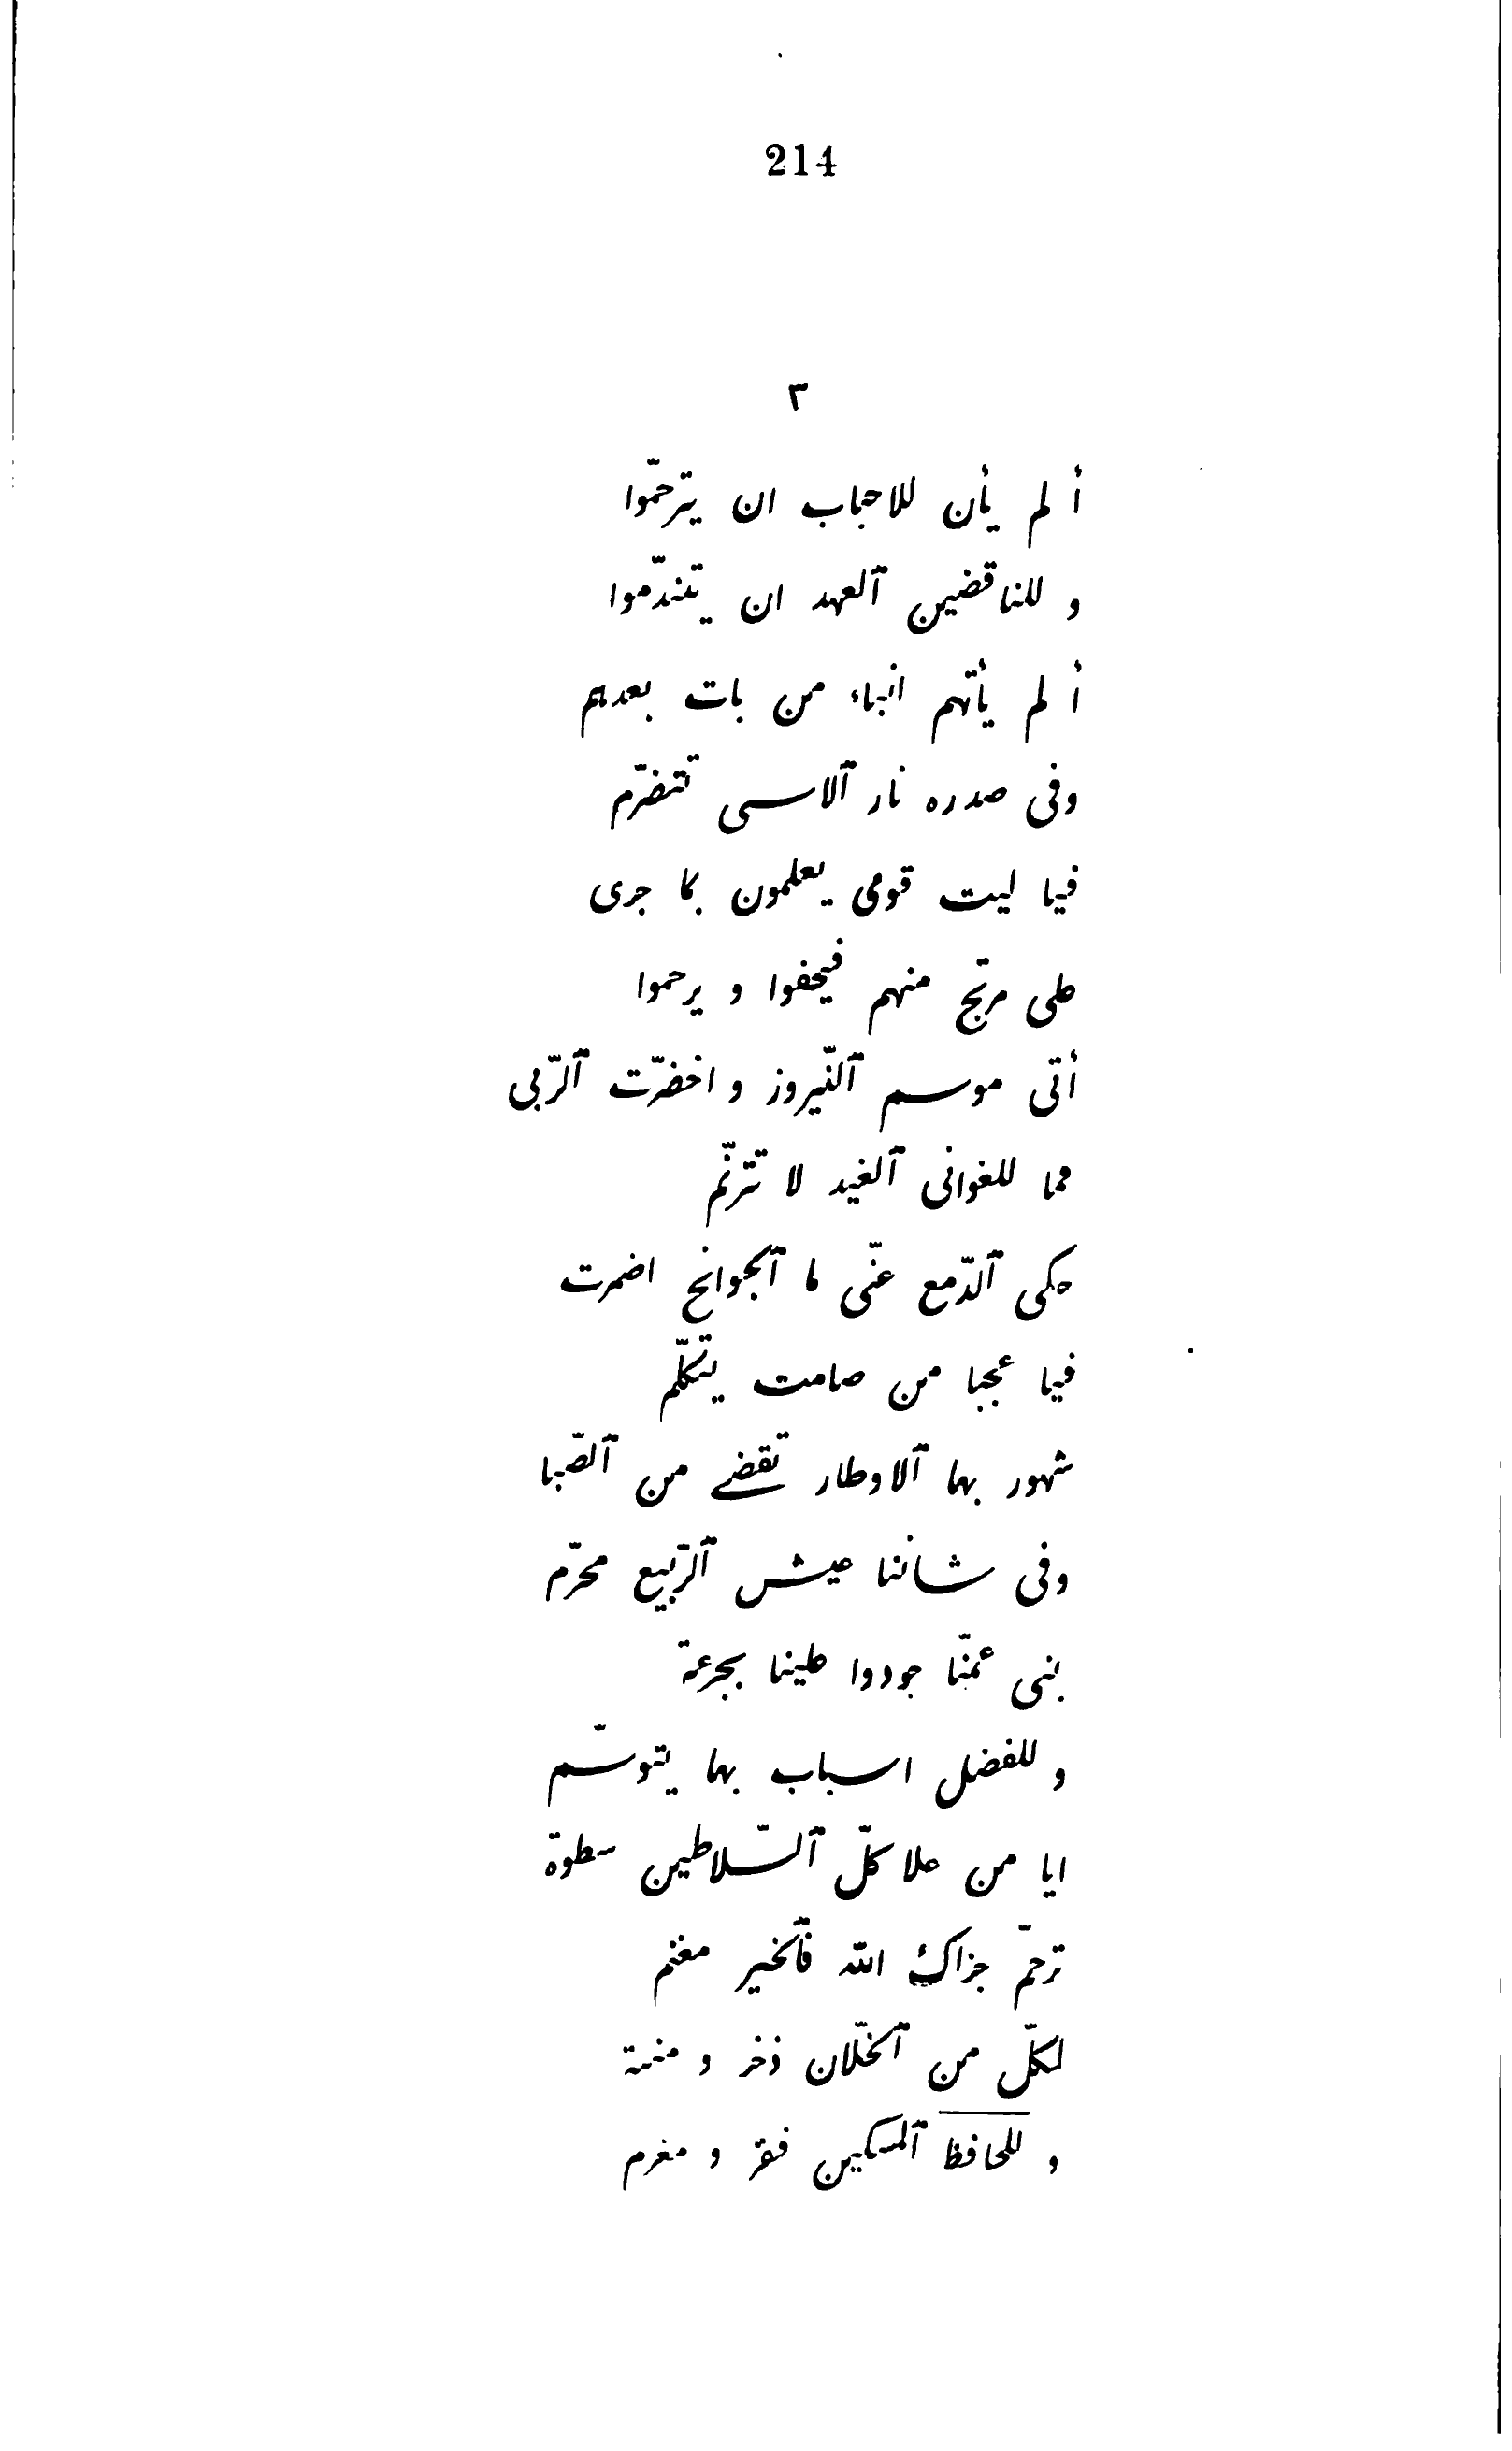 214
٣
أ لم يأن للاحباب ان يترحّموا
و للناقضين ٱلعهد ان يتندّموا
أ لم يأتهم انباء من بات بعدهم
وفى صدره نار ٱلاسى تتضرّم
فيا ليت قومى يعلمون بما جرى
على مرتج منهم فيحفوا و يرحموا
أتى موسم ٱلنّيروز و اخضرّت ٱلرّبى
فما للغوانى ٱلغيد لا تترنّم
حكى ٱلدّمع عنّى ما ٱلجوانح اضمرت
فيا عجبا من صامت يتكلّم
شهور بها ٱلاوطار تقضے من ٱلصّبا
وفى شاننا عيش ٱلرّبيع محرّم
بنى عمّنا جودوا علينا بجرعة
و للفضل اسباب بها يتوسّم
ايا من علا كلّ ٱلسّلاطين سطوة
ترحّم جزاك الله فٱلخير مغنم
لكلّ من ٱلخلّان ذخر و منية
و للحافظ ٱلمسكين فقر و مغرم